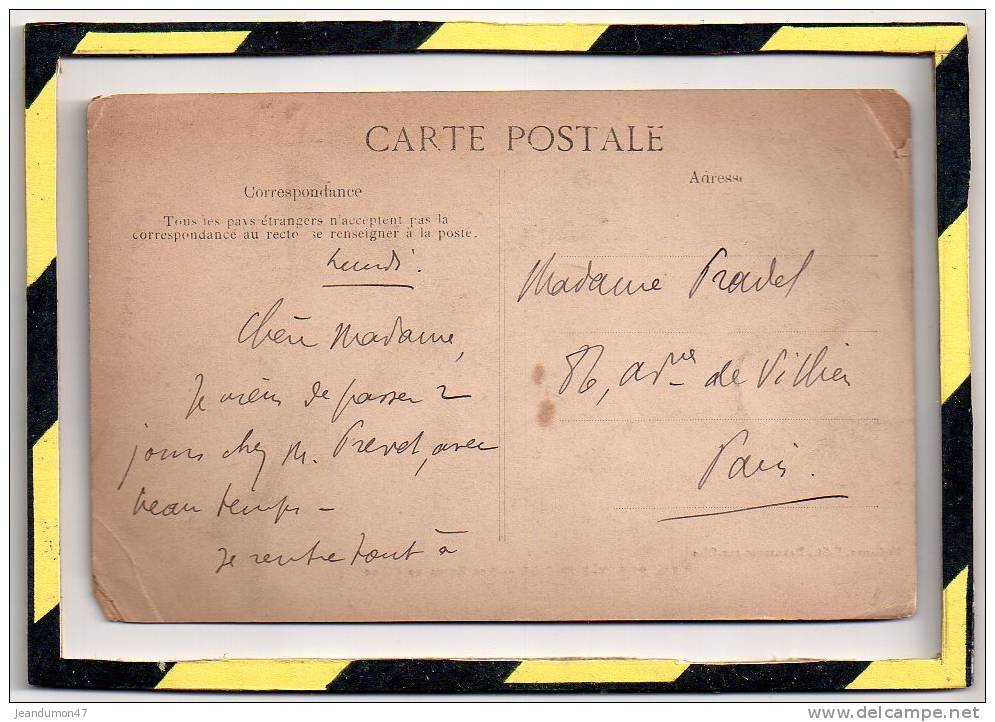 CARTE POSTALE
Correspondance
Tous les pays étrangers n'acceptent pas la
correspondance au recto se renseigner à la poste.
Lundi.
Chère Madame,
Je viens de passer 2
jours chez M. Prevel, avec
beau temps –
Je rentre tout à
Adresse
Madame Pradel
86, avnue de Villiers
Paris.
jeandumon47
www.delcampe.net